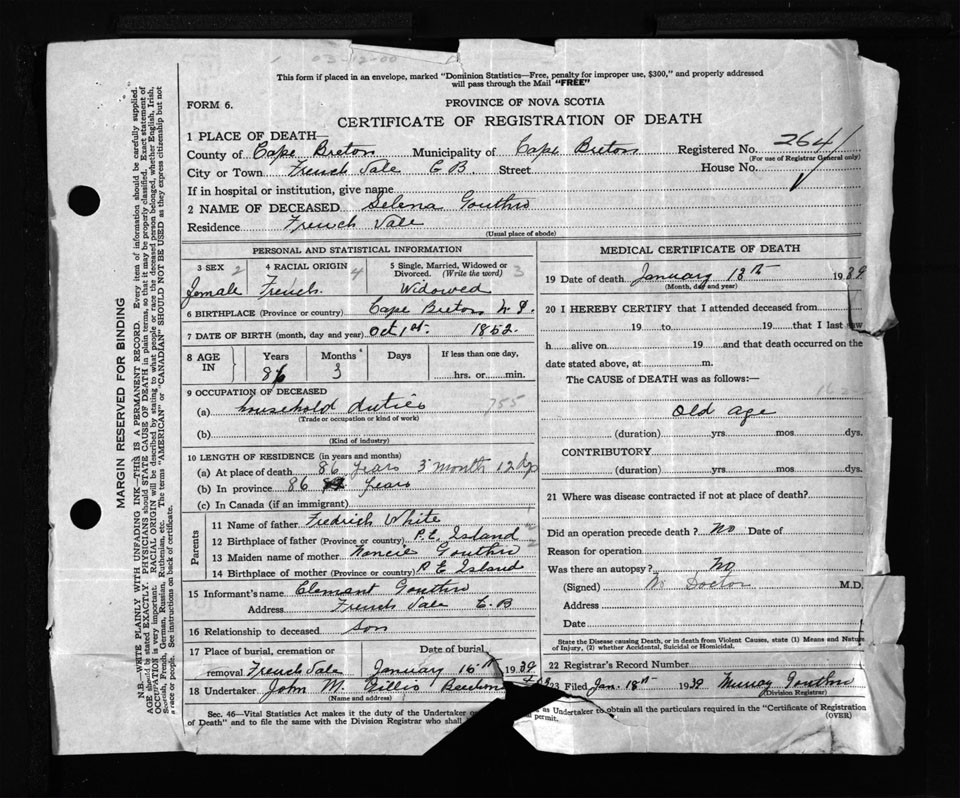 This form if placed in an envelope, marked "Dominion Statistics—Free, penalty for improper use, $300," and properly addressed
will pass through the Mail "FREE"
FORM 6.
PROVINCE OF NOVA SCOTIA
CERTIFICATE OF REGISTRATION OF DEATH
1 PLACE OF DEATH—
County of Cape Breton Municipality of Cape Breton Registered No. 2641
(For use of Registrar General only)
City or Town French Vale C B. Street House No.
If in hospital or institution, give name
2 NAME OF DECEASED Selena Gouthro
Residence French Vale
(Usual place of abode)
PERSONAL AND STATISTICAL INFORMATION
3 SEX 2 4 RACIAL ORIGIN 4 5 Single, Married, Widowed or
Divorced. (Write the word) 3
female French. Widowed
6 BIRTHPLACE (Province or country) Cape Breton N S.
7 DATE OF BIRTH (month, day and year) Oct 1st. 1852.
8 AGE IN Years Months Days If less than one day,
86 3 hrs. or min.
9 OCCUPATION OF DECEASED
(a) household duties 755
(Trade or occupation or kind of work)
(b)
(Kind of industry)
10 LENGTH OF RESIDENCE (in years and months)
(a) At place of death 86 years 3 month 12 dys
(b) In province 86 years
(c) In Canada (if an immigrant)
Parents
11 Name of father Fedrich White
12 Birthplace of father (Province or country) P.E. Island
13 Maiden name of mother Nancie Gouthro
14 Birthplace of mother (Province or country) P E Island
15 Informant's name Clemant Gouthro
Address French Vale C.B
16 Relationship to deceased Son
17 Place of burial, cremation or Date of burial
removal French Vale January 16th 1939
18 Undertaker John M. Gillis
(Name and address)
Sec. 46—Vital Statistics Act makes it the duty of the Undertaker
of Death" and to file the same with the Division Registrar who shall
MEDICAL CERTIFICATE OF DEATH
19 Date of death January 13th 1939
(Month, day and year)
20 I HEREBY CERTIFY that I attended deceased from
19 to 19 that I last saw
h alive on 19 and that death occurred on the
date stated above, at m.
The CAUSE OF DEATH was as follows:—
Old age
(duration) yrs mos dys.
CONTRIBUTORY
(duration) yrs. mos. dys.
21 Where was disease contracted if not at place of death?
Did an operation precede death? No Date of
Reason for operation
Was there an autopsy? No
(Signed) No Doctor M.D.
Address
Date
State the Disease causing Death, or in death from Violent Causes, state (1) Means and Nature
of Injury, (2) whether Accidental, Suicidal or Homicidal.
22 Registrar's Record Number
23 Filed Jan. 18th 1939 Murray Gouthro
(Division Registrar)
as Undertaker to obtain all the particulars required in the "Certificate of Registration
permit. (OVER)
MARGIN RESERVED FOR BINDING
N.B.—WRITE PLAINLY WITH UNFADING INK—THIS IS A PERMANENT RECORD. Every item of information should be carefully supplied.
AGE should be stated EXACTLY. PHYSICIANS should STATE CAUSE OF DEATH in plain terms, so that it may be properly classified. Exact statement of
OCCUPATION is very important. RACIAL ORIGIN will be described by stating to what people or race the deceased person belonged, whether English, Irish,
Scottish, French, German, Russian, Ruthenian, etc. The terms "AMERICAN" or "CANADIAN" SHOULD NOT BE USED as they express citizenship but not
a race or people. See instructions on back of certificate.